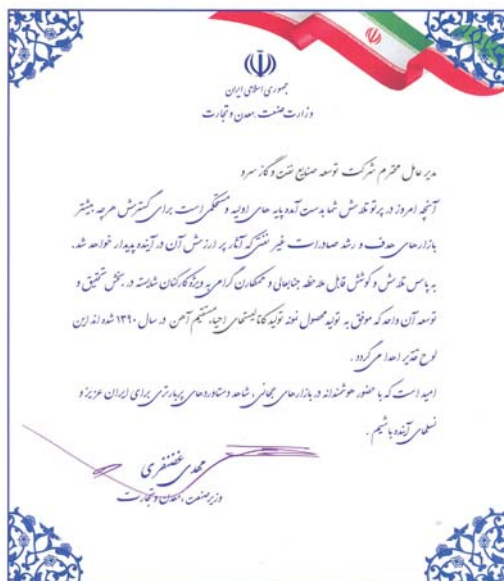 جمهوری اسلامی ایران
وزارت صنعت، معدن و تجارت
مدیر عامل محترم شرکت توسعه صنایع نفت و گاز سرو
آنچه امروز در پرتو تلاش شما بدست آمده پایه های اولیه و مستحکمی است برای گسترش هرچه بیشتر
بازارهای هدف و رشد صادرات غیر نفتی که آثار پر ارزش آن در آینده پدیدار خواهد شد.
به پاس تلاش و کوشش قابل ملاحظه جنابعالی و همکاران گرامی به ویژه کارکنان شایسته در بخش تحقیق و
توسعه آن واحد که موفق به تولید محصول نمونه تولید کاتالیستهای احیاء مستقیم آهن در سال ۱۳۹۰ شده اند این
لوح تقدیر اهدا می گردد.
امید است که با حضور هوشمندانه در بازارهای جهانی، شاهد دستاوردهای پربارتری برای ایران عزیز و
نسلهای آینده باشیم.
مهدی غضنفری
وزیر صنعت، معدن و تجارت